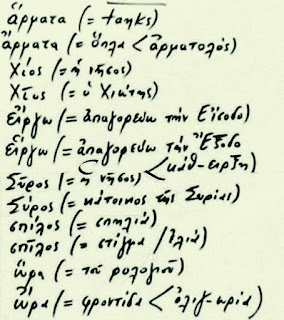 ἅρματα (= tanks)
ἄρματα (= ὅπλα < ἀρματολός)
Χίος (= ἡ νῆσος)
Χῖος (= ὁ Χιώτης)
εἴργω (= ἀπαγορεύω τὴν Εἴσοδο)
εἵργω (= ἀπαγορεύω τὴν Ἔξοδο
< κάθ-ειρξη)
Σῦρος (= ἡ νῆσος)
Σύρος (= κάτοικος τῆς Συρίας)
σπίλος (= σπηλιά)
σπῖλος (= στίγμα / ἐλιά)
ὥρα (= τοῦ ρολογιοῦ)
ὤρα (= φροντίδα < ὀλιγ-ωρία)